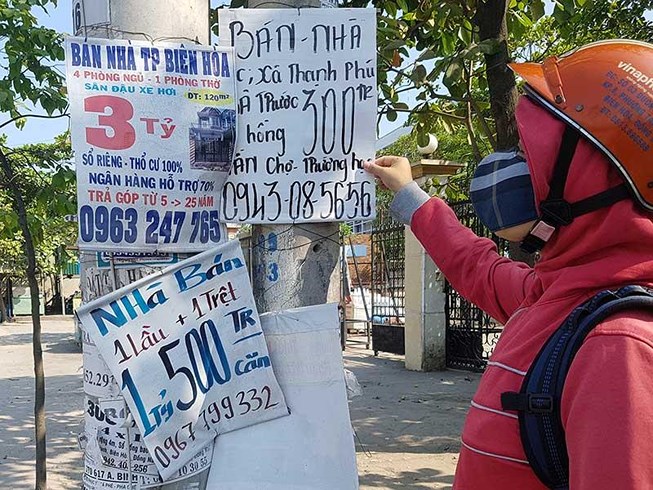 BÁN NHÀ TP BIÊN HÒA
4 PHÒNG NGỦ - 1 PHÒNG THỜ
SÂN ĐẬU XE HƠI
DT: 120m²
3 TỶ
SỔ RIÊNG - THỔ CƯ 100%
NGÂN HÀNG HỖ TRỢ 70%
TRẢ GÓP TỪ 5 -> 25 NĂM
0963 247 765
BÁN - NHÀ
Xã Thạnh Phú
THƯỚC 300 TR
hồng
Chợ - Thương
0943-085656
NHÀ BÁN
1 Lầu + 1 Trệt
1 Tỷ 500 TR
Căn
0967 799 332